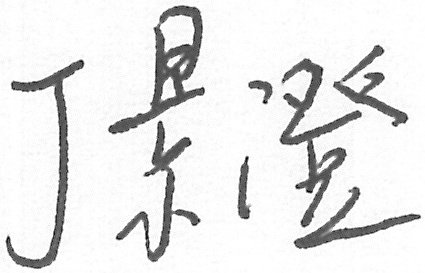 丁景澄